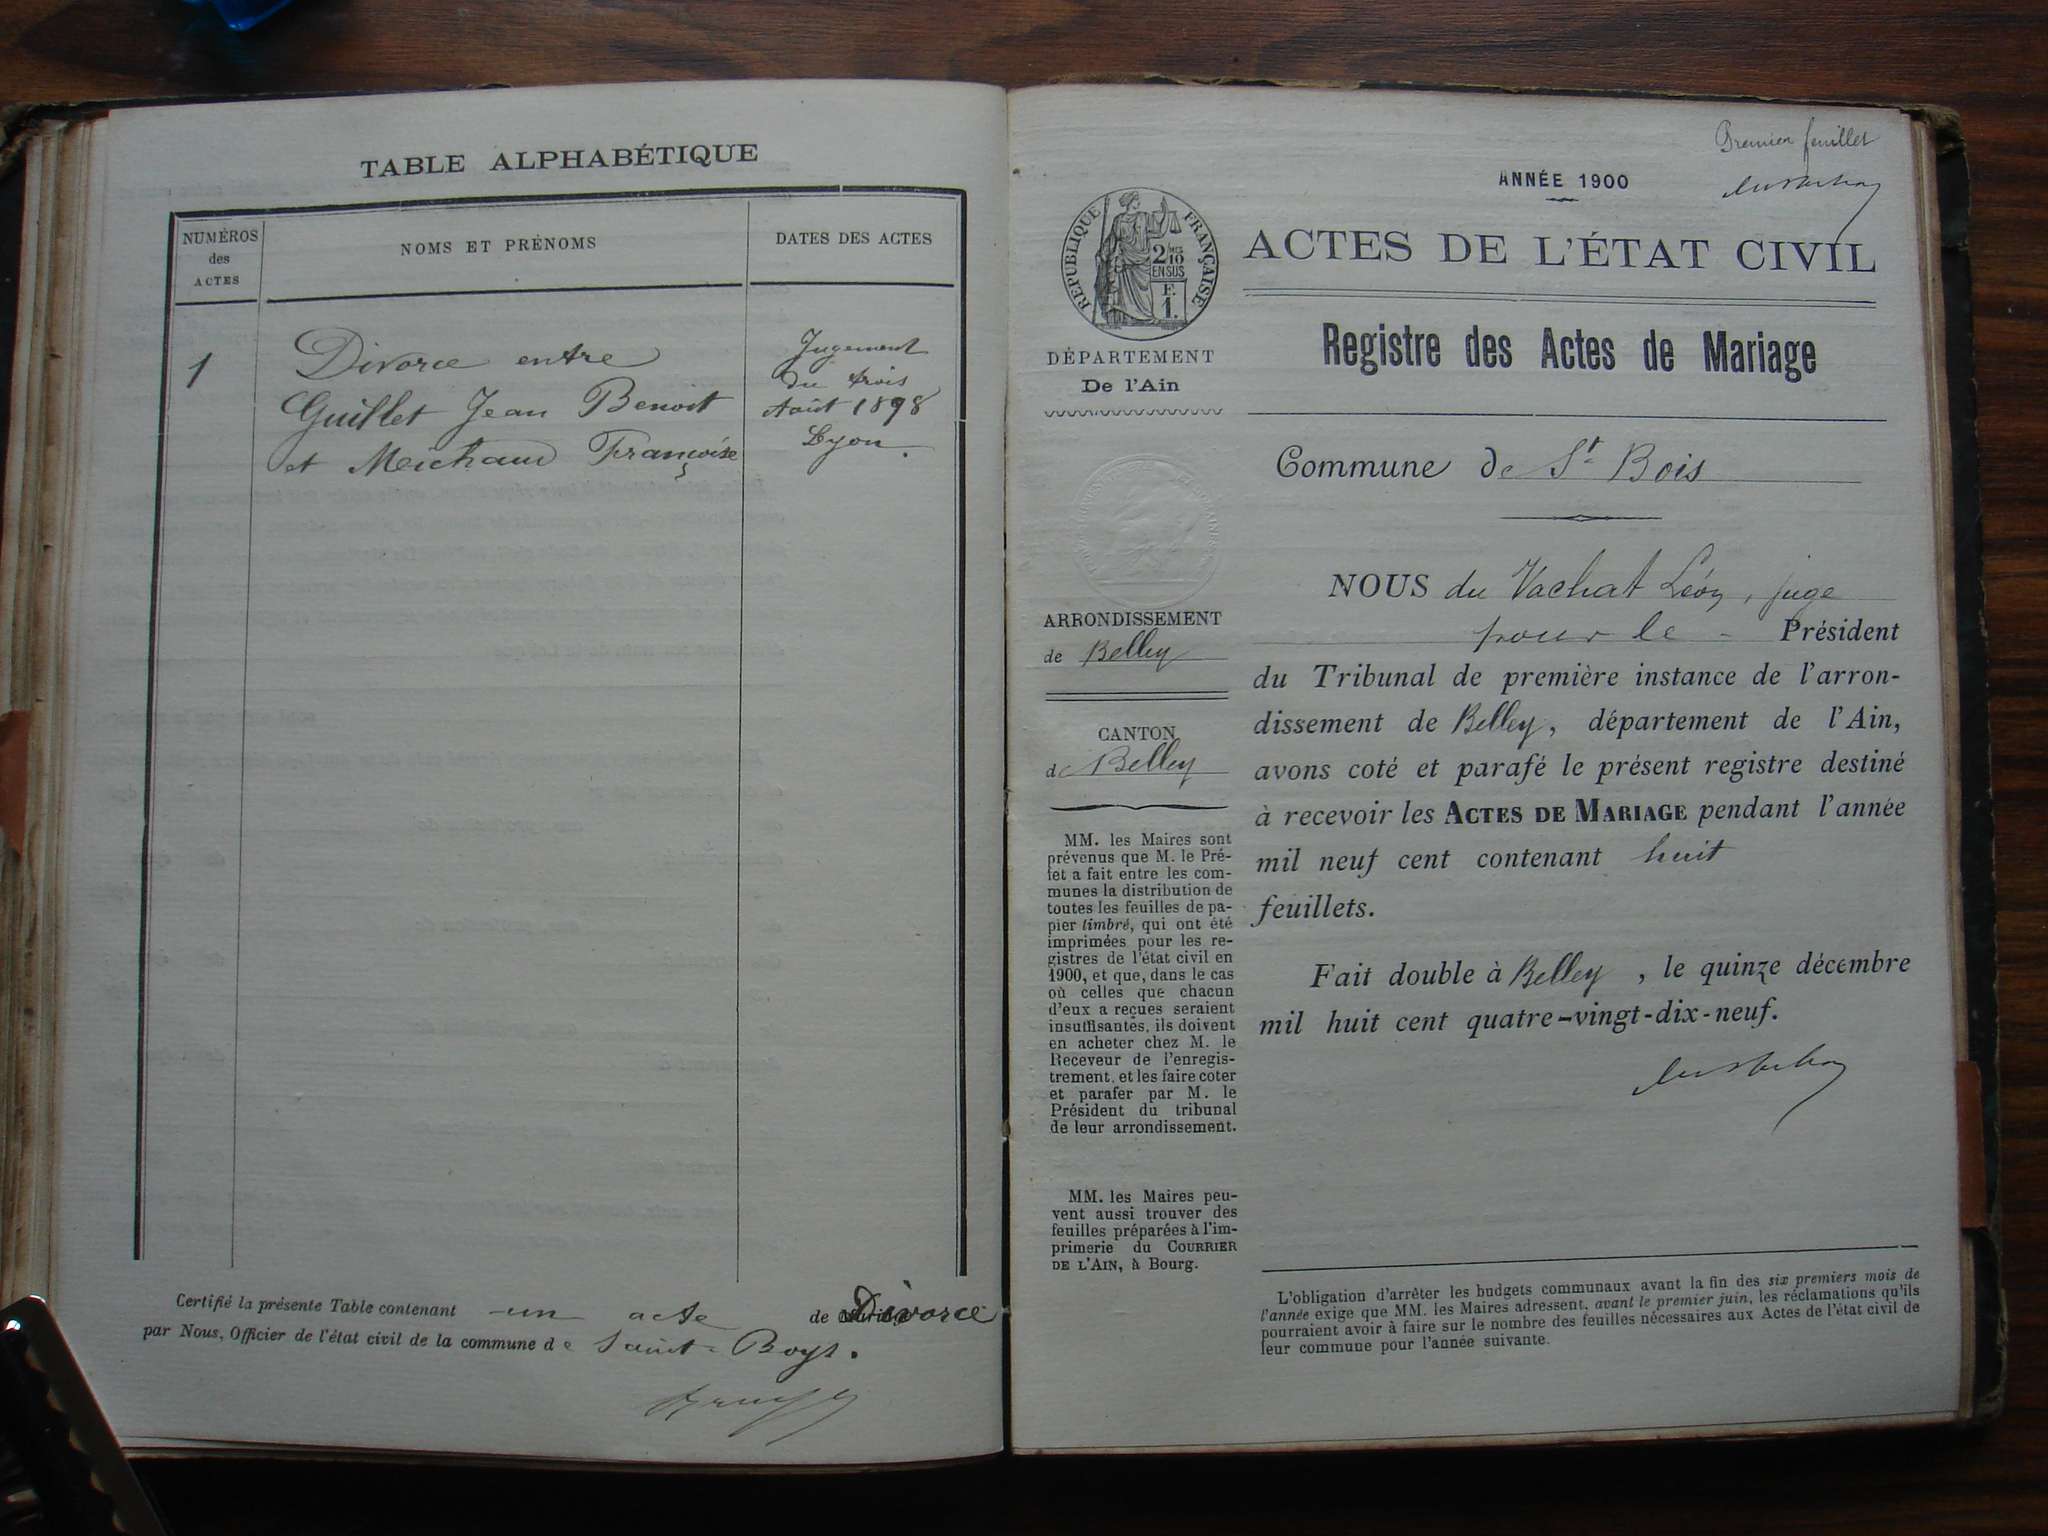 TABLE ALPHABÉTIQUE
NUMÉROS
des
ACTES
NOMS ET PRÉNOMS
DATES DES ACTES
1
Divorce entre
Guillet Jean Benoit
et Meichaud Françoise
Jugement
du trois
Août 1898
Lyon.
Certifié la présente Table contenant un acte de Divorce
par Nous, Officier de l'état civil de la commune de Saint-Boys.
Premier feuillet
ANNÉE 1900
RÉPUBLIQUE FRANÇAISE
2/10
EN SUS
F.
1.
ACTES DE L'ÉTAT CIVIL
Registre des Actes de Mariage
DÉPARTEMENT
De l'Ain
Commune de St Bois
ARRONDISSEMENT
de Belley
CANTON
de Belley
MM. les Maires sont
prévenus que M. le Pré-
fet a fait entre les com-
munes la distribution de
toutes les feuilles de pa-
pier timbré, qui ont été
imprimées pour les re-
gistres de l'état civil en
1900, et que, dans le cas
où celles que chacun
d'eux a reçues seraient
insuffisantes, ils doivent
en acheter chez M. le
Receveur de l'enregis-
trement, et les faire coter
et parafer par M. le
Président du tribunal
de leur arrondissement.
MM. les Maires peu-
vent aussi trouver des
feuilles préparées à l'im-
primerie du COURRIER
DE L'AIN, à Bourg.
NOUS du Vachat Léon, juge
pour le Président
du Tribunal de première instance de l'arron-
dissement de Belley, département de l'Ain,
avons coté et parafé le présent registre destiné
à recevoir les ACTES DE MARIAGE pendant l'année
mil neuf cent contenant huit
feuillets.
Fait double à Belley, le quinze décembre
mil huit cent quatre-vingt-dix-neuf.
L'obligation d'arrêter les budgets communaux avant la fin des six premiers mois de
l'année exige que MM. les Maires adressent, avant le premier juin, les réclamations qu'ils
pourraient avoir à faire sur le nombre des feuilles nécessaires aux Actes de l'état civil de
leur commune pour l'année suivante.